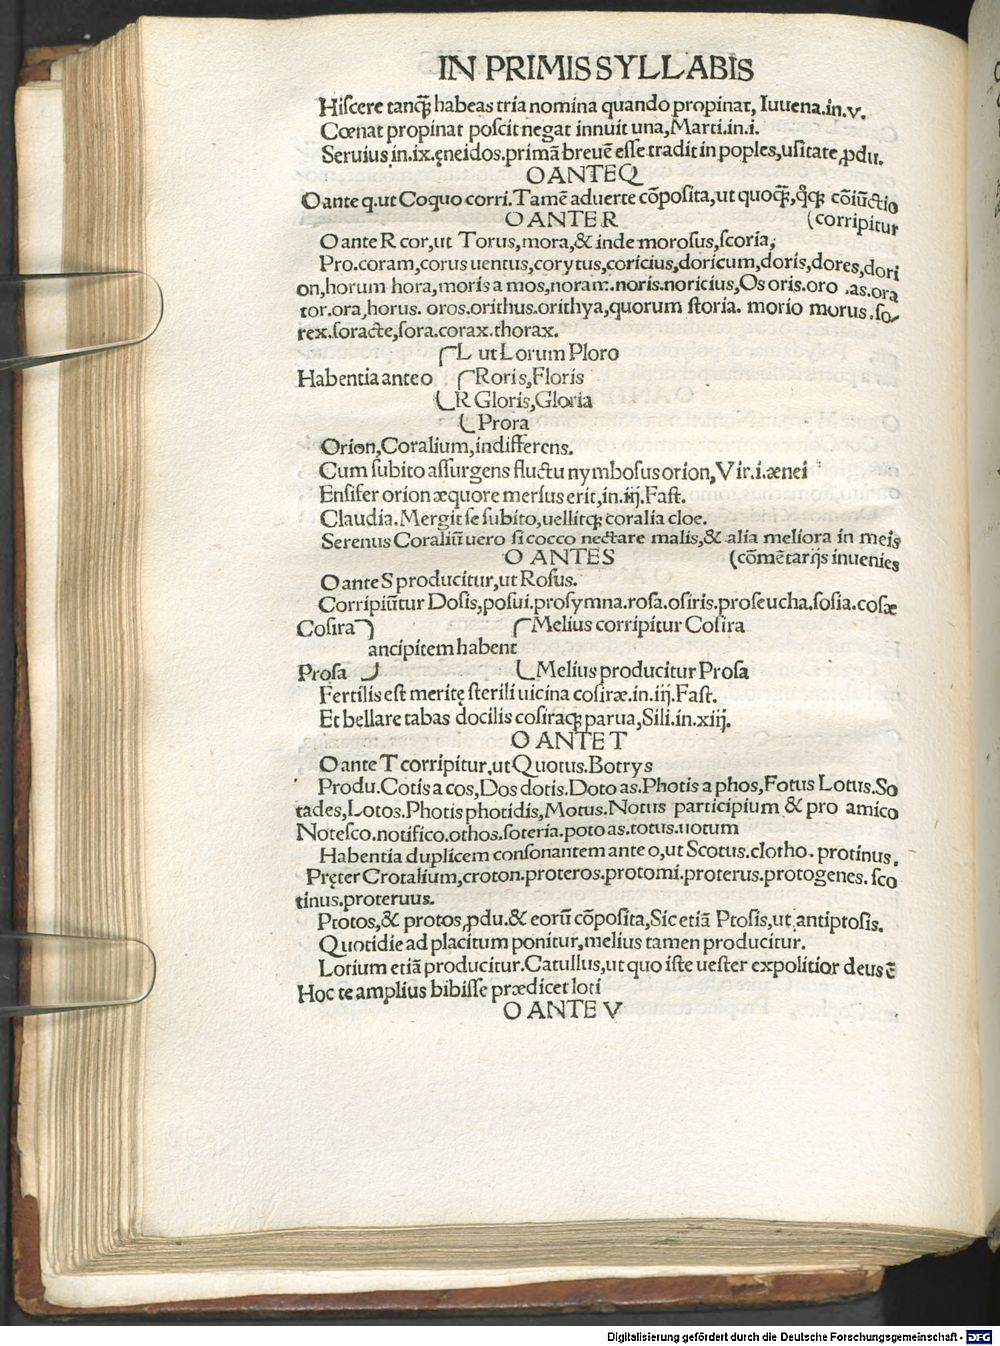 IN PRIMIS SYLLABIS
Hiſcere tanq̃ habeas tria nomina quando propinat, Iuuena.in.v.
Cœnat propinat poſcit negat innuit una,Marti.in.i.
Seruius in.ix.ęneidos.primã breuẽ eſſe tradit in poples,uſitate ꝓdu.
O ANTE Q
O ante q.ut Coquo corri.Tamẽ aduerte cõpoſita,ut quoq̃, cõiũctio
O ANTE R (corripitur
O ante R cor,ut Torus,mora,& inde moroſus,ſcoria;
Pro.coram,corus uentus,corytus,coricius,doricum,doris,dores,dori
on,horum hora,moris a mos,noram.noris.noricius,Os oris.oro .as.ora
tor.ora,horus. oros.orithus.orithya,quorum ſtoria. morio morus.ſo⸗
rex.ſoracte,ſora.corax.thorax.
L ut Lorum Ploro
Habentia ante o Roris,Floris
R Gloris,Gloria
Prora
Orion,Coralium,indifferens.
Cum ſubito aſſurgens fluctu nymboſus orion,Vir.i.ænei
Enſifer orion æquore merſus erit,in.iij.Faſt.
Claudia.Mergit ſe ſubito,uellitqꝫ coralia cloe.
Serenus Coraliũ uero ſi cocco nectare malis,& alia meliora in meis
O ANTE S (cõmẽtarijs inuenies
O ante S producitur,ut Roſus.
Corripiũtur Doſis,poſui.proſymna.roſa.oſiris.proſeucha.ſoſia.coſæ
Coſira Melius corripitur Coſira
ancipitem habent
Proſa Melius producitur Proſa
Fertilis eſt meritę ſterili uicina coſiræ.in.iij.Faſt.
Et bellare tabas docilis coſiraqꝫ parua,Sili.in.xiij.
O ANTE T
O ante T corripitur,ut Quotus.Botrys
Produ.Cotis a cos,Dos dotis.Doto as.Photis a phos,Fotus Lotus.So
tades,Lotos.Photis photidis,Motus.Notus participium & pro amico
Noteſco.notifico.othos.ſoteria.poto as.totus.uotum
Habentia duplicem conſonantem ante o,ut Scotus.clotho. protinus.
Pręter Crotalium,croton.proteros.protomi.proterus.protogenes. ſco
tinus.proteruus.
Ptotos,& protos,ꝓdu.& eorũ cõpoſita,Sic etiã Ptoſis,ut antiptoſis.
Quotidie ad placitum ponitur,melius tamen producitur.
Lotium etiã producitur.Catullus,ut quo iſte ueſter expolitior deus ẽ
Hoc te amplius bibiſſe prædicet loti
O ANTE V
Digitalisierung gefördert durch die Deutsche Forschungsgemeinschaft - DFG